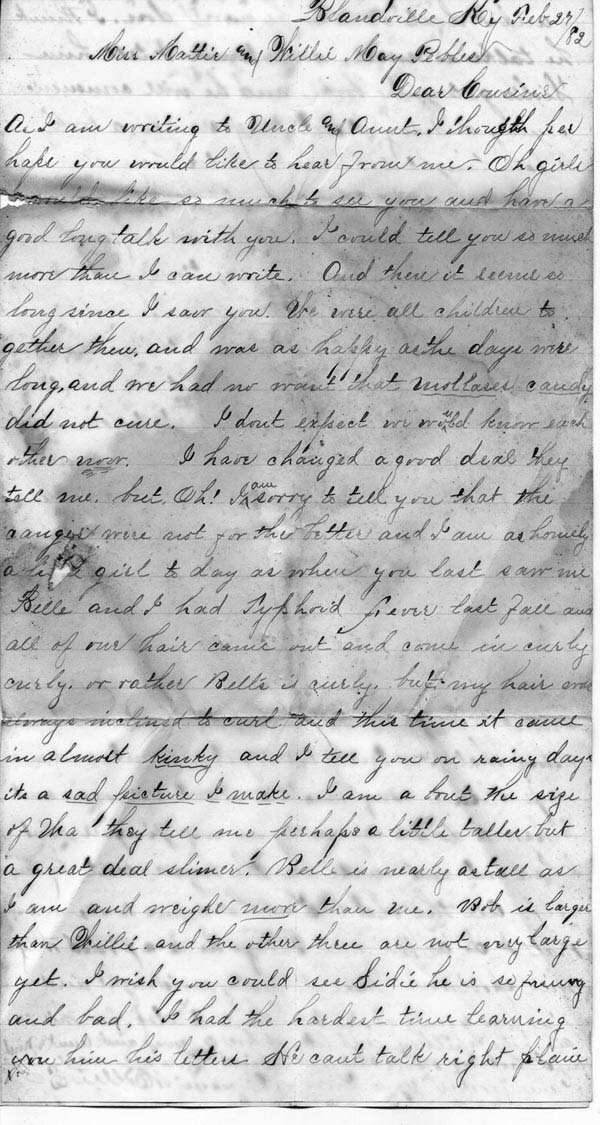 Blandville Ky Feb 27/82
Miss Mattie and Willie May Pebles
Dear Cousins
As I am writing to Uncle and Aunt, I thought per
haps you would like to hear from me. Oh girls
like so much to see you and have a
good long talk with you. I could tell you so much
more than I can write. And then it seems so
long since I saw you. We were all children to
gether then, and was as happy as the days were
long, and we had no want that mollases candy
did not cure. I dont expect we would know each
other now. I have changed a good deal they
tell me. but, Oh! I am sorry to tell you that the
were not for the better and I am as homely
a girl to day as when you last saw me
Belle and I had Typhoid fever last fall and
all of our hair came out and come in curly
curly. or rather Bells is curly. but my hair was
always inclined to curl and this time it came
in almost kinky and I tell you on rainy days
its a sad picture I make. I am a bout the size
of they tell me perhaps a little taller but
a great deal slimer. Belle is nearly as tall as
I am and weighs more than me. Bob is larger
than Willie. and the other three are not very large
yet. I wish you could see Sidie he is so funny
and bad. I had the hardest time learning
him his letters He cant talk right plain